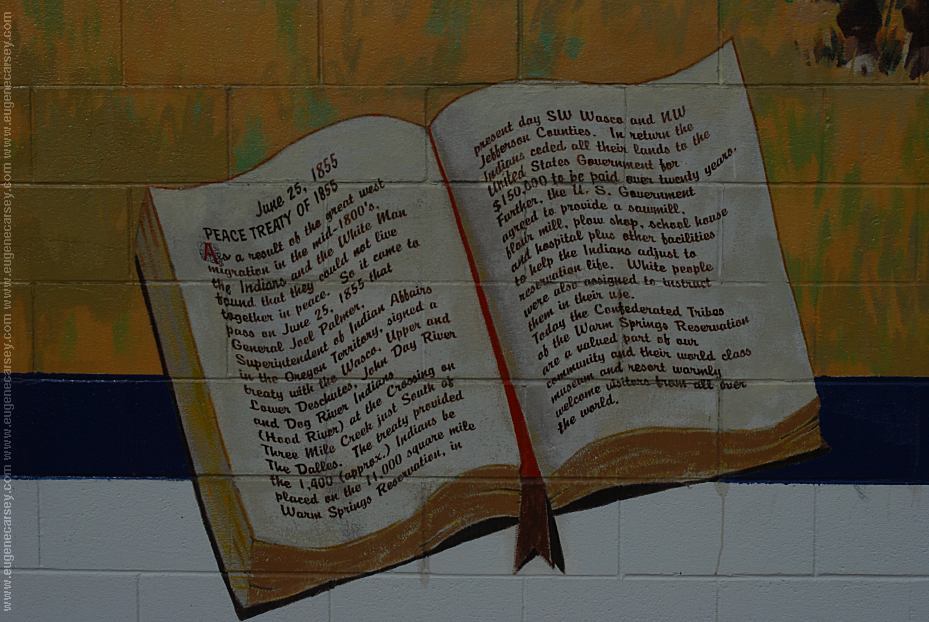 June 25, 1855
PEACE TREATY OF 1855
As a result of the great west
migration in the mid-1800's,
the Indians and the White Man
found that they could not live
together in peace. So it came to
pass on June 25, 1855 that
General Joel Palmer,
Superintendent of Indian Affairs
in the Oregon Territory, signed a
treaty with the Wasco, Upper and
Lower Deschutes, John Day River
and Dog River Indians
(Hood River) at the Crossing on
Three Mile Creek just South of
The Dalles. The treaty provided
the 1,400 (approx.) Indians be
placed on the 11,000 square mile
Warm Springs Reservation, in
present day SW Wasco and NW
Jefferson Counties. In return the
Indians ceded all their lands to the
United States Government for
$150,000 to be paid over twenty years.
Further, the U. S. Government
agreed to provide a sawmill,
flour mill, plow shop, school house
and hospital plus other facilities
to help the Indians adjust to
reservation life. White people
were also assigned to instruct
them in their use.
Today the Confederated Tribes
of the Warm Springs Reservation
are a valued part of our
community and their world class
museum and resort warmly
welcome visitors from all over
the world.
www.eugenecarsey.com www.eugenecarsey.com www.eugenecarsey.com www.eugenecarsey.com